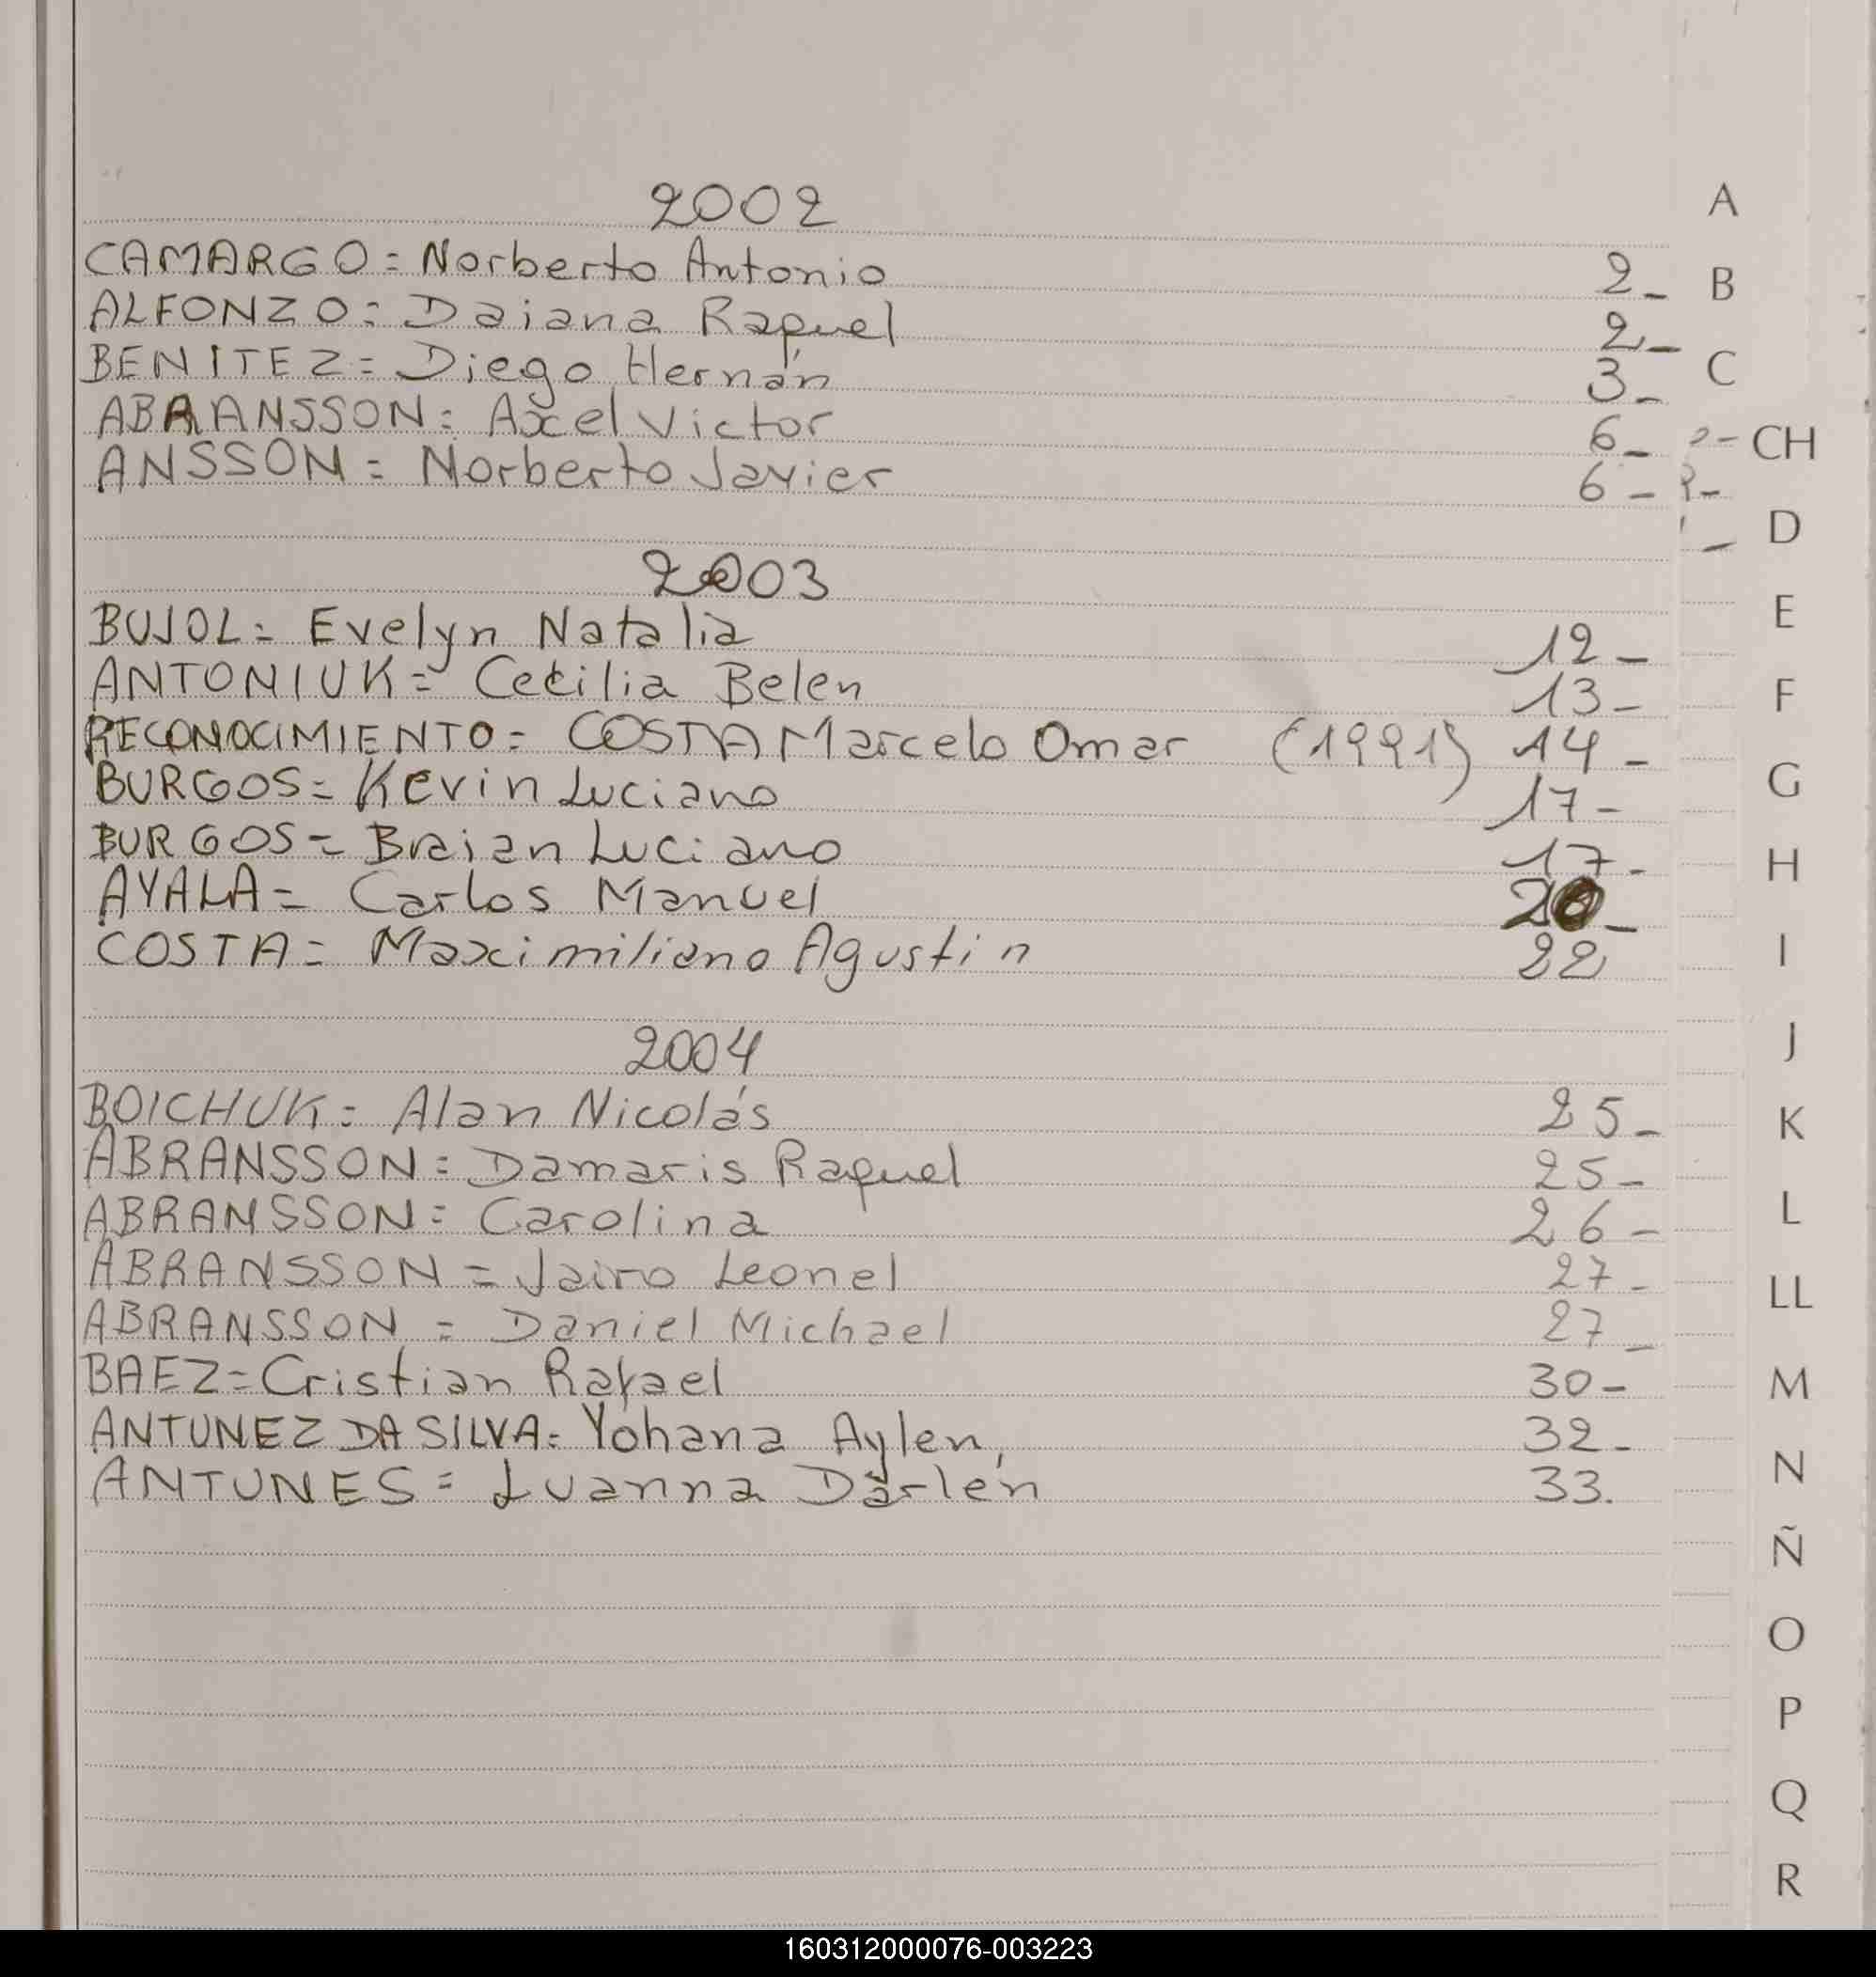 2002
CAMARGO = Norberto Antonio 2-
ALFONZO = Daiana Raquel 2-
BENITEZ = Diego Hernán 3-
ABRANSSON = Axel Victor 6-
ANSSON = Norberto Javier 6-
2003
BUJOL = Evelyn Natalia 12-
ANTONIUK = Cecilia Belen 13-
RECONOCIMIENTO = COSTA Marcelo Omar (1991) 14-
BURGOS = Kevin Luciano 17-
BURGOS = Braian Luciano 17-
AYALA = Carlos Manuel 20-
COSTA = Maximiliano Agustin 22
2004
BOICHUK = Alan Nicolás 25-
ABRANSSON = Damaris Raquel 25-
ABRANSSON = Carolina 26-
ABRANSSON = Jairo Leonel 27-
ABRANSSON = Daniel Michael 27-
BAEZ = Cristian Rafael 30-
ANTUNEZ DA SILVA = Yohana Aylen 32-
ANTUNES = Luanna Därlén 33.
A
B
C
CH
D
E
F
G
H
I
J
K
L
LL
M
N
Ñ
O
P
Q
R
160312000076-003223